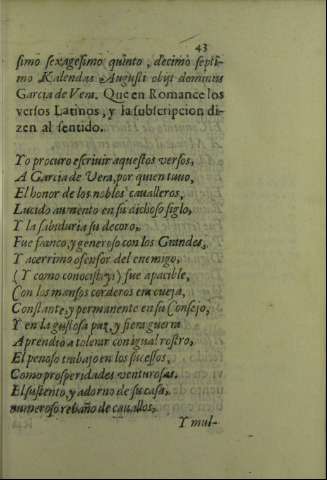 43
simo sexagesimo quinto, decimo septi-
mo Kalendas Augusti obijt dominus
Garcia de Vera. Que en Romance los
versos Latinos, y la subscripcion di-
zen al sentido.
Yo procuro escriuir aquestos versos,
A Garcia de Vera, por quien tuuo,
El honor de los nobles caualleros,
Lucido aumento en su dichoso siglo,
Y la sabiduria su decoro,
Fue franco, y generoso con los Grandes,
Y acerrimo ofensor del enemigo,
(Y como conocistays) fue apacible,
Con los mansos corderos era oueja,
Constante, y permanente en su Consejo,
Y en la gustosa paz, y fiera guerra
Aprendio a tolerar con igual rostro,
El penoso trabajo en los sucessos,
Como prosperidades venturosas.
El sustento, y adorno de su casa,
numeroso rebaño de cauallos,
Y mul-